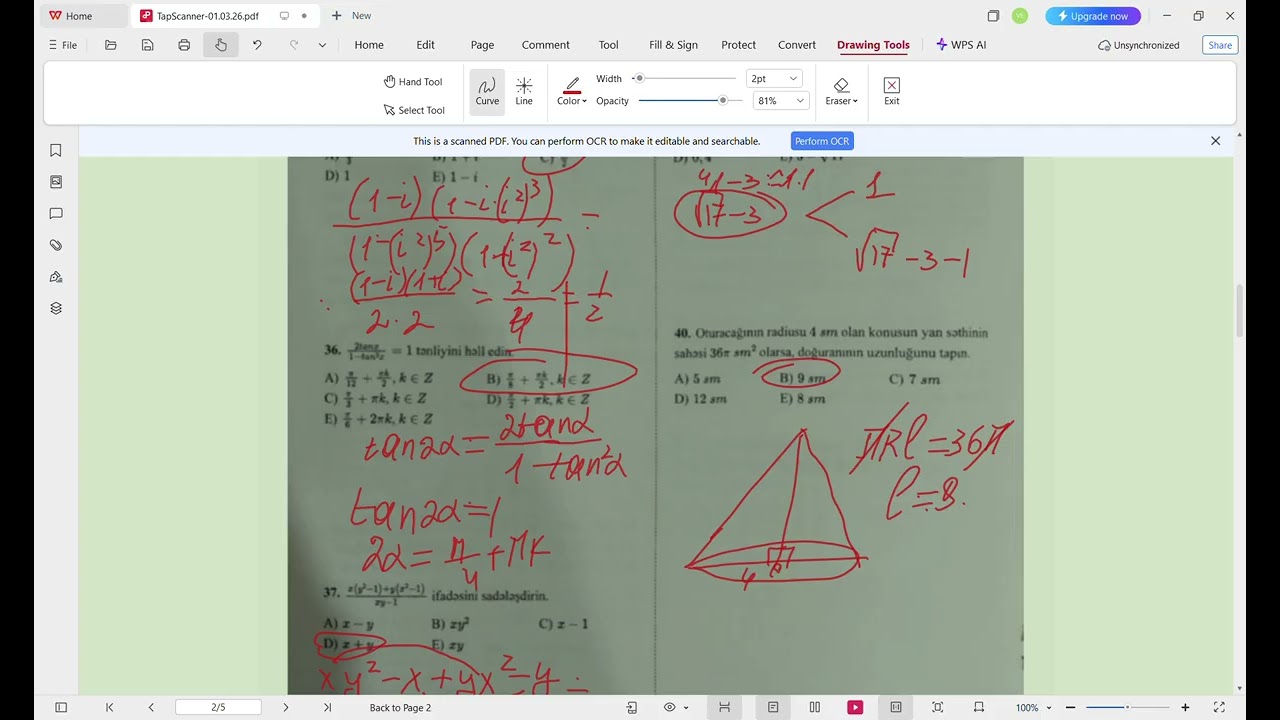 Home
TapScanner-01.03.26.pdf
New
Upgrade now
File
Home Edit Page Comment Tool Fill & Sign Protect Convert Drawing Tools WPS AI
Unsynchronized
Share
Hand Tool
Select Tool
Curve
Line
Color
Width
2pt
Opacity
81%
Eraser
Exit
This is a scanned PDF. You can perform OCR to make it editable and searchable.
Perform OCR
D) 1 E) 1 − i
(1−i)(1−i·(i²)³)
(1−(i²)⁵)(1−(i²)²) =
(1−i)(1+i)
2·2
= 2/4 = 1/2
36. 2tanx/(1−tan²x) = 1 tənliyini həll edin.
A) π/12 + πk/2, k ∈ Z B) π/8 + πk/2, k ∈ Z
C) π/3 + πk, k ∈ Z D) π/2 + πk, k ∈ Z
E) π/6 + 2πk, k ∈ Z
tan2α = 2tanα/(1−tan²α)
tan2α=1
2α = π/4 + πk
37. (x(y²−1)+y(x²−1))/(xy−1) ifadəsini sadələşdirin.
A) x − y B) xy² C) x − 1
D) x + y E) xy
xy² − x + yx² − y =
√17 −3
1
√17 −3 −1
40. Oturacağının radiusu 4 sm olan konusun yan səthinin
sahəsi 36π sm² olarsa, doğuranının uzunluğunu tapın.
A) 5 sm B) 9 sm C) 7 sm
D) 12 sm E) 8 sm
πRl = 36π
4
2/5
Back to Page 2
100%